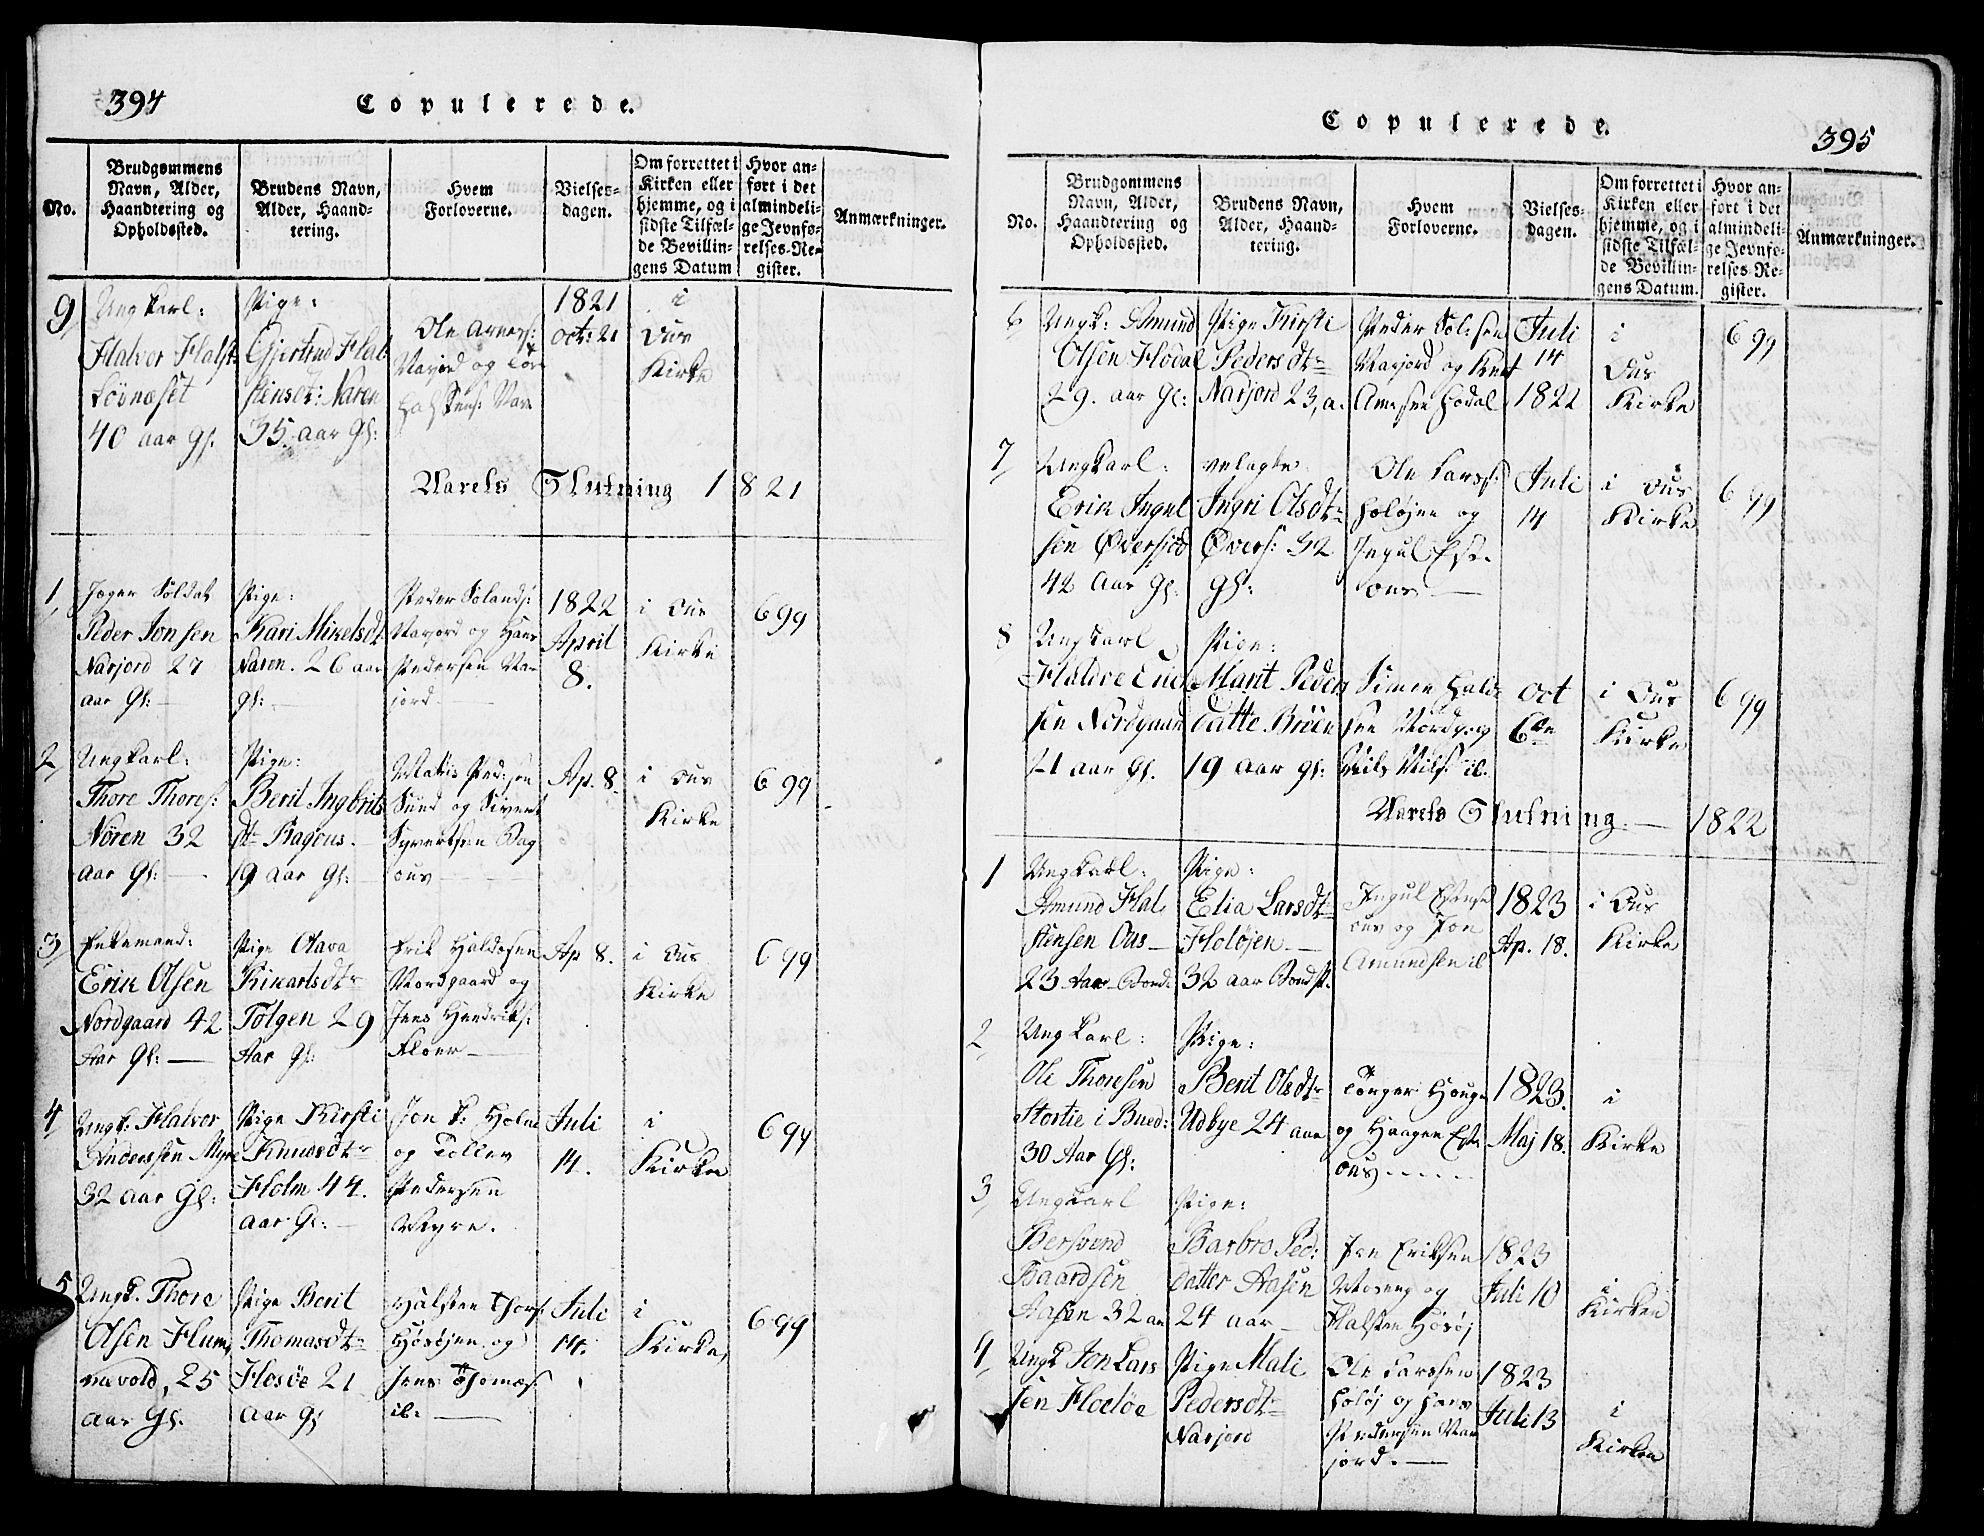 394
Copulerede.
No.
Brudgommens
Navn, Alder,
Haandtering og
Opholdssted.
Brudens Navn,
Alder, Haand-
tering.
Hvem
Forloverne.
Vielses-
dagen.
Om forrettet i
Kirken eller
hjemme, og i
sidste Tilfæl-
de Bevillin-
gens Datum
Hvor an-
ført i det
almindeli-
ge Jevnfø-
relses-Re-
gister.
Anmærkninger.
9
Ungkarl:
Halvor Halst:
Løvnæset
40 aar gl.
Pige:
Gjertrud Hal-
stensdt: Naren
35. aar gl:
Ole Arnes:
og
Halstens:
1821
oct: 21
i
Ous
Kirke
Aarets Slutning 1821
1
Jæger Soldat
Peder Jonsen
Narjord 27
aar gl:
Pige:
Kari Mikelsdt
Naren. 26 aar
gl:
Peder
Narjord og Hans
Pedersen Nar
jord.
1822
April
8.
i Ous
Kirke
699
2
Ungkarl:
Thore Thores:
Nøren 32
aar gl:
Pige:
Berit Ingbrits
dt Bagous.
19 aar gl:
Sund og Sivert
Syvertsen Bag
ous
Ap. 8.
i Ous
Kirke
699
3
Enkemand:
Erik Olsen
Nordgaard 42
Aar gl:
Pige Olava
Rikartsdtr
Tolgen 29
Aar gl:
Erik Haldosen
Nordgaard og
Jens Hendriks:
Floen
Ap 8.
i Ous
Kirke
699
4
Ungk: Halvor
Anderssen Myre
32 aar gl:
Pige Kirsti
Knudsdtr
Holm 44.
aar gl:
Jon K: Holm
og Tollev
Pedersen
Myre.
Juli
14.
i
Kirke
699
5
Ungk. Thore
Olsen Hum,
mevold, 25
aar gl.
Pige Berit
Thomasdtr
Hosøe 21
aar gl
Halsten Thors:
og
Jens Thomas:
ib:
Juli
14.
i
Kirke,
699
Copulerede.
395
No.
Brudgommens
Navn, Alder,
Haandtering og
Opholdssted.
Brudens Navn,
Alder, Haand-
tering.
Hvem
Forloverne.
Vielses-
dagen.
Om forrettet i
Kirken eller
hjemme, og i
sidste Tilfæl-
de Bevillin-
gens Datum.
Hvor an-
ført i det
almindeli-
ge Jevnfø-
relses-Re-
gister.
Anmærkninger.
6
Ungk: Amund
Olsen Hodal
29. aar gl:
Pige Kirsti
Pedersdtr
Narjord 23, a.
Peder
Narjord og Knut
Arnesen Hodal
Juli
14
1822
i
Ous
Kirke
699
7
Ungkarl:
Erik Ingul
sen Øversiød
42 Aar gl:
Ingri Olsdtr
Øvers: 32
gl:
Ole Larss:
Holøjen og
Ingul Est.
ous
Juli
14
i Ous
Kirke
699
8
Ungkarl
sen Nordgaard
aar gl.
Pige:
Marit Peders
datte Brøen
19 aar gl:
Simen Hald-
sen Nordg. og
Nils Nils: ib.
oct
6te
i Ous
Kirke
699
Aarets Slutning. 1822
1
Ungkarl:
Amund Hal-
stensen Ous
23 Aar Bond:
Pige:
Elia Larsdtr
Holøjen
32 aar Bondst.
Ingul Estense
ous og Jon
Amundsen ib
1823
Ap. 18.
i Ous
Kirke
2
Ungkarl:
Ole Thoresen
Stortie i Bued:
30 Aar gl:
Pige:
Berit Olsdtr
Udbye 24 aar
Tonger Houge
og Haagen Este
ous
1823.
Maj 18.
i
Kirke
3
Ungkarl
Bersvend
Baardsen
Aasen 32 aa
Pige:
Barbro Ped:
datter Aasen
24 aar
Jon Eriksen
Moseng og
Halsten Hosøj
1823
Juli 10
i
Kirken
4
Ungk Jon Lars
sen Holøe
Pige Mali
Pedersdtr
Narjord
Ole Larssen
Holøj og Hans
Pedersen Nar
jord.
1823
Juli 13
i
Kirken